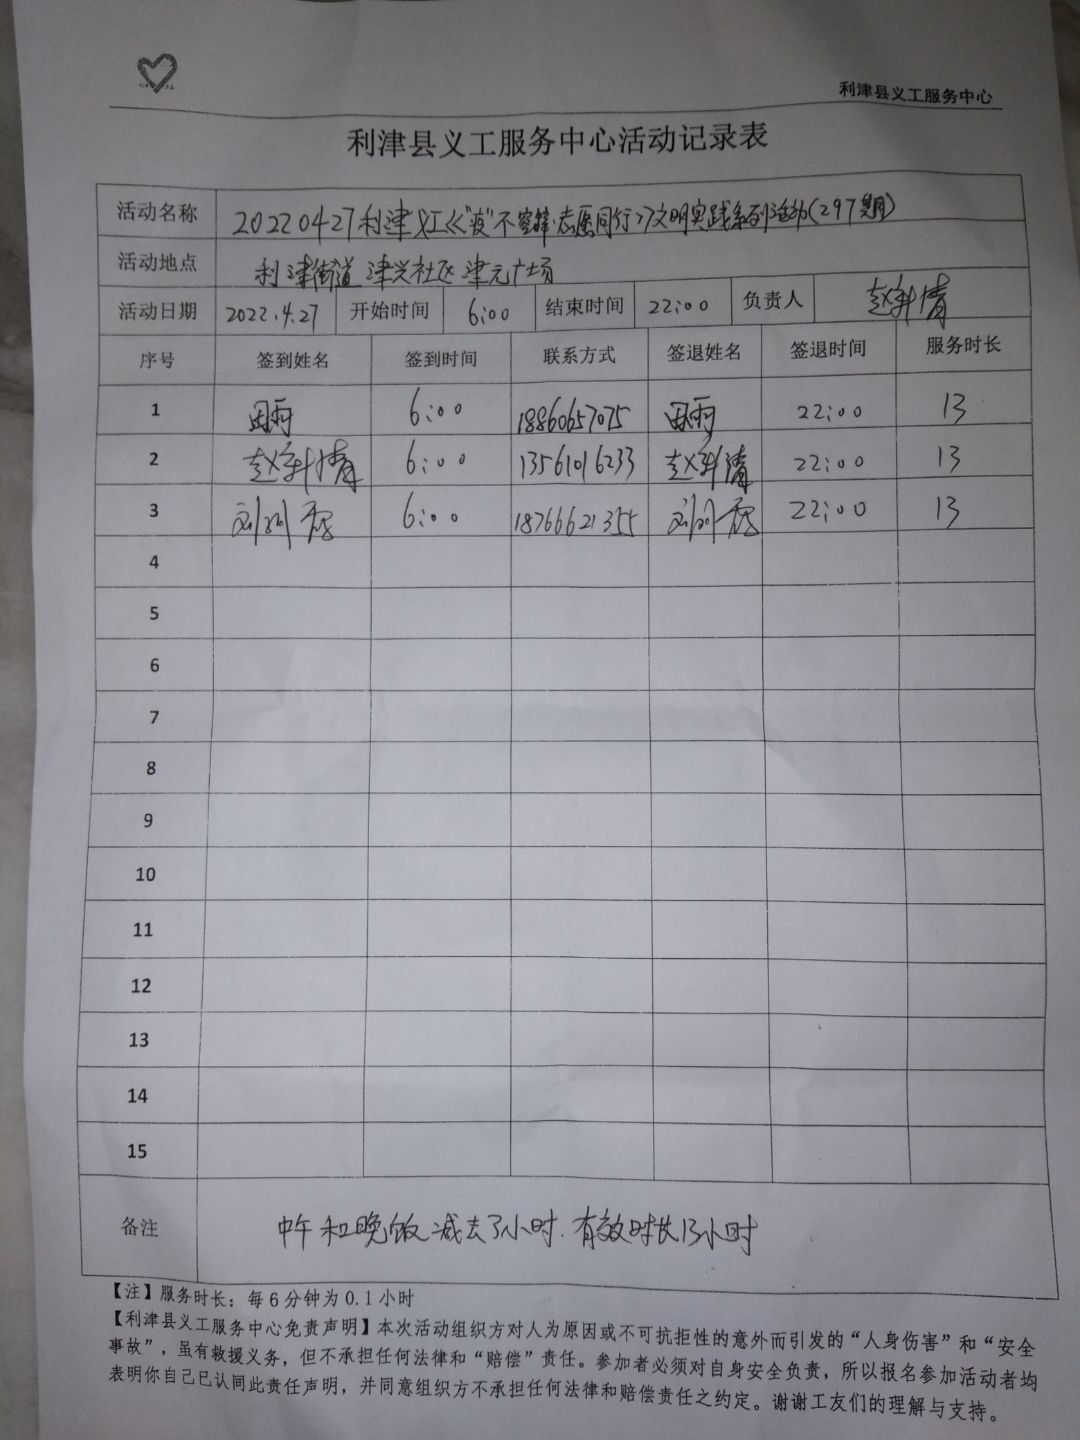 利津县义工服务中心
利津县义工服务中心活动记录表
活动名称 20220427利津义工《“疫”不容辞·志愿同行》文明实践系列活动(297期)
活动地点 利津街道津兴社区津元广场
活动日期 2022.4.27 开始时间 6:00 结束时间 22:00 负责人
序号 签到姓名 签到时间 联系方式 签退姓名 签退时间 服务时长
1 田雨 6:00 18860657075 田雨 22:00 13
2 6:00 13561016233 22:00 13
3 6:00 18766621355 22:00 13
4
5
6
7
8
9
10
11
12
13
14
15
备注 中午和晚饭减去3小时.有效时长13小时
【注】服务时长：每6分钟为0.1小时
【利津县义工服务中心免责声明】本次活动组织方对人为原因或不可抗拒性的意外而引发的“人身伤害”和“安全
事故”，虽有救援义务，但不承担任何法律和“赔偿”责任。参加者必须对自身安全负责，所以报名参加活动者均
表明你自己已认同此责任声明，并同意组织方不承担任何法律和赔偿责任之约定。谢谢工友们的理解与支持。